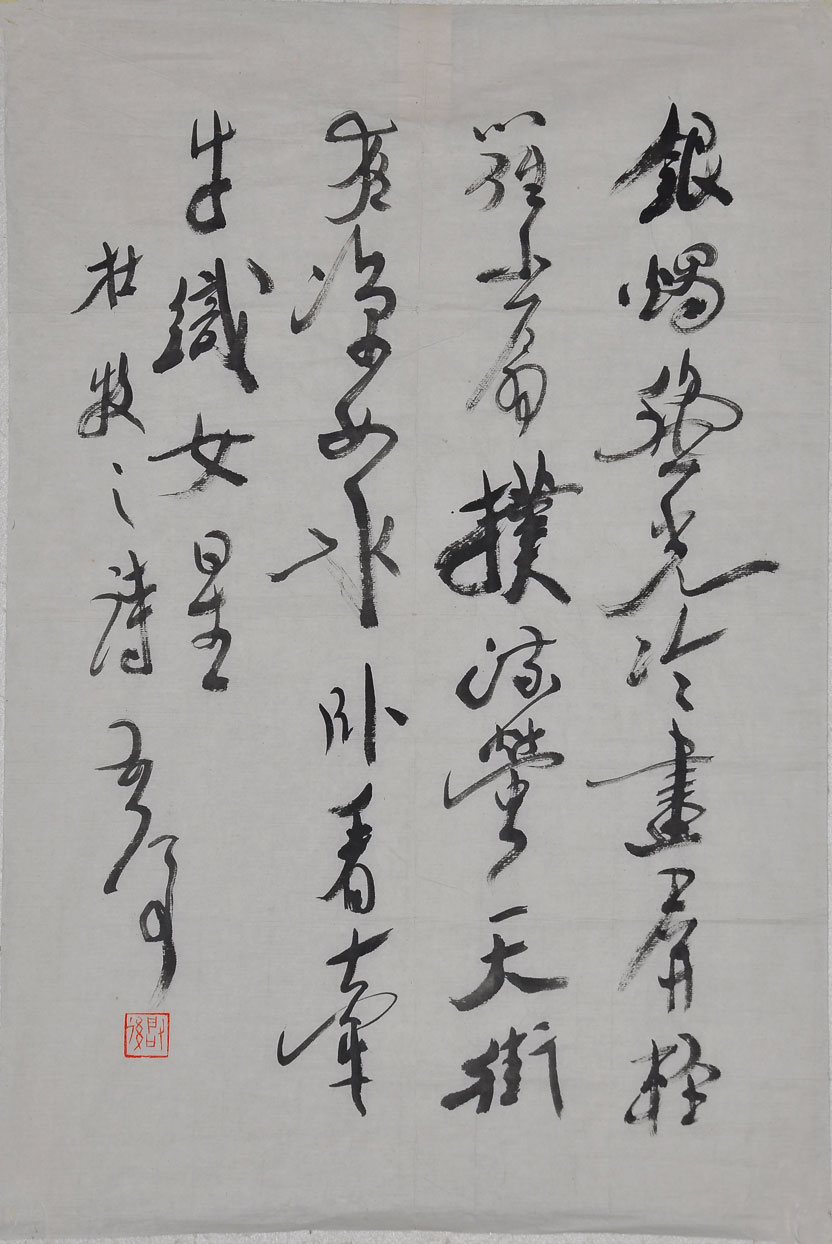 銀燭秋光冷畫屏輕
羅小扇撲流螢天街
夜涼如水卧看牽
牛織女星
杜牧之詩